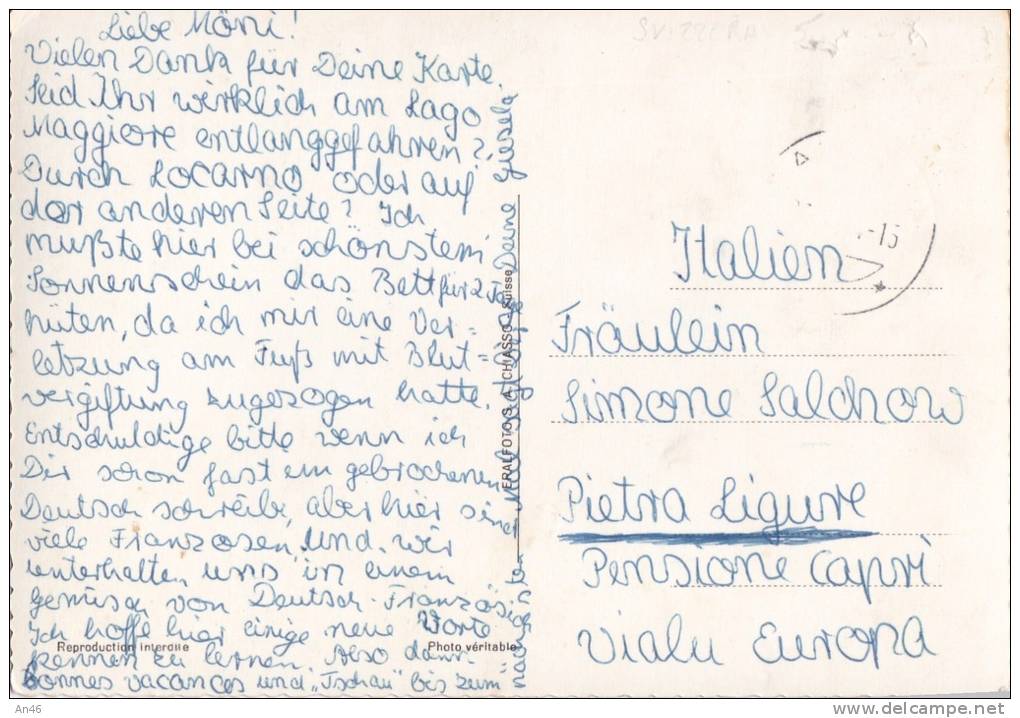 Liebe Möni!
Vielen Dank für Deine Karte.
Seid Ihr wirklich am Lago
Maggiore entlanggefahren?
Durch Locarno oder auf
der anderen Seite? Ich
mußte hier bei schönstem
Sonnenschein das Bett für 2 Tage
hüten, da ich mir eine Ver-
letzung am Fuß mit Blut-
vergiftung zugezogen hatte.
Entschuldige bitte wenn ich
Dir schon fast ein gebrochenen
Deutsch schreibe, aber hier sind
viele Franzosen und wir
unterhalten uns in einem
Gemisch von Deutsch-Französisch
Ich hoffe hier einige neue Worte
kennen zu lernen. Also dann
Bonnes vacances und „Tschau" bis zum
nächsten Mal
Deine Gisela
ERALFOTO S.A. CHIASSO Suisse
Reproduction interdite
Photo véritable
SVIZZERA
-15
Italien
Fräulein
Simone Salchow
Pietra Ligure
Pensione Capri
Vialu Europa
An46
delcampe.net